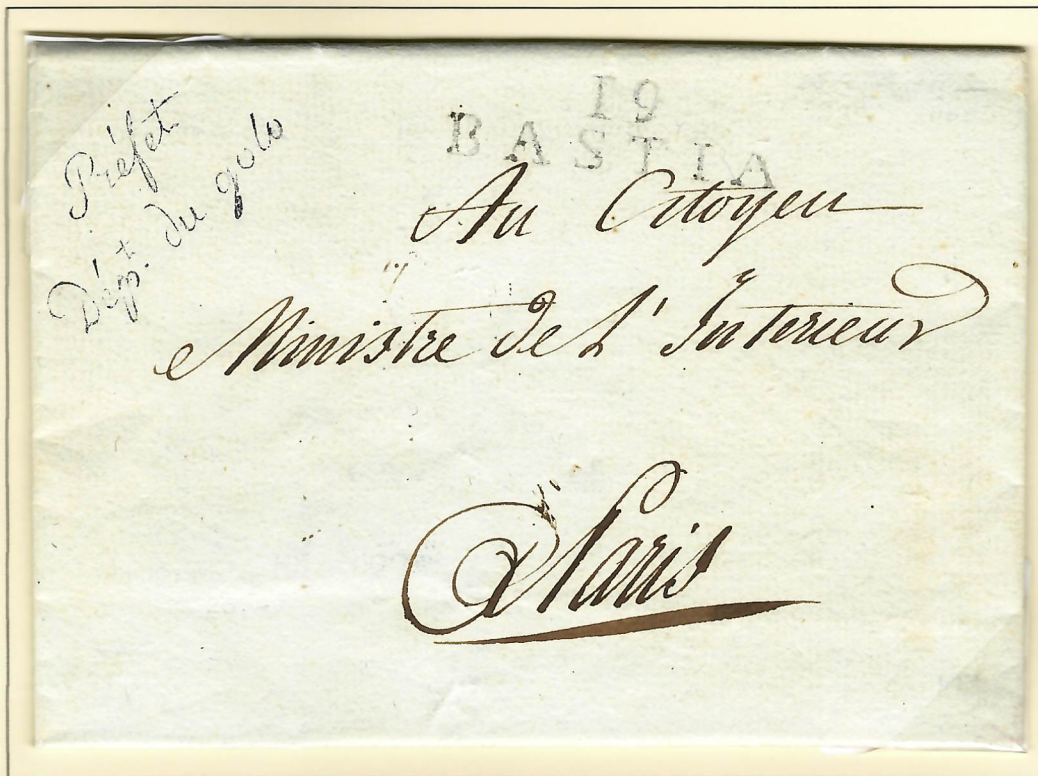 Préfet
Dépt. du golo
19
BASTIA
Au Citoyen
Ministre de L'Interieur
A Paris